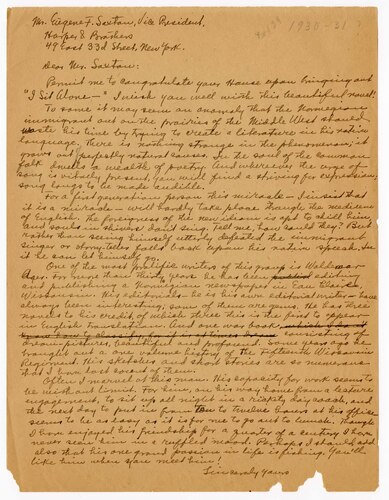 1930-31?
Mr. Eugene F. Saxton, Vice President,
Harper & Brothers
49 East 33d Street, New York.
Dear Mr. Saxton:
Permit me to congratulate your House upon bringing out
"I Sit Alone—" I wish you well with this beautiful novel!
To some it may seem an anomaly that the Norwegian
immigrant out on the prairies of the Middle West should
waste his time by trying to create a literature in his native
language. There is nothing strange in the phenomenon; it
grows out perfectly natural causes. In the soul of the common
folk dwells a wealth of poetry. And wherever the urge of
song is vitally present you will find a striving for expression,
song longs to be made audible.
For a first generation person this miracle — I insist that
it is a miracle — will hardly take place through the medium
of English. The foreignness of the new idiom is apt to chill him,
and souls in shivers don't sing. Tell me, how could they? But
rather than seeing himself utterly defeated the immigrant
singer or story-teller falls back upon his native speech. In
it he can let himself go.
One of the most prolific writers of this group is Waldemar
Ager. For more than thirty years he has been editing
and publishing a Norwegian newspaper in Eau Claire,
Wisconsin. His editorials — he is his own editorial writer — have
always been interesting; some of them are gems. He has three
novels to his credit of which this is the first to appear
in English translation. And one more book
consisting of
dream pictures, beautiful and profound. Some years ago he
brought out a one volume history of the Fifteenth Wisconsin
Regiment. His sketches and short stories are so numerous
that I have lost count of them.
Often I marvel at this man. His capacity for work seems to
be without limit. For him, on his way home from a lecture
engagement, to sit up all night in a rickety day coach, and
the next day to put in from ten to twelve hours at his office
seems to be as easy as it is for me to go out to lunch. Though
I have enjoyed his friendship for a quarter of a century I have
never seen him in a ruffled mood. Perhaps I should add
also that his one grand passion in life is fishing. You'll
like him when you meet him!
Sincerely yours